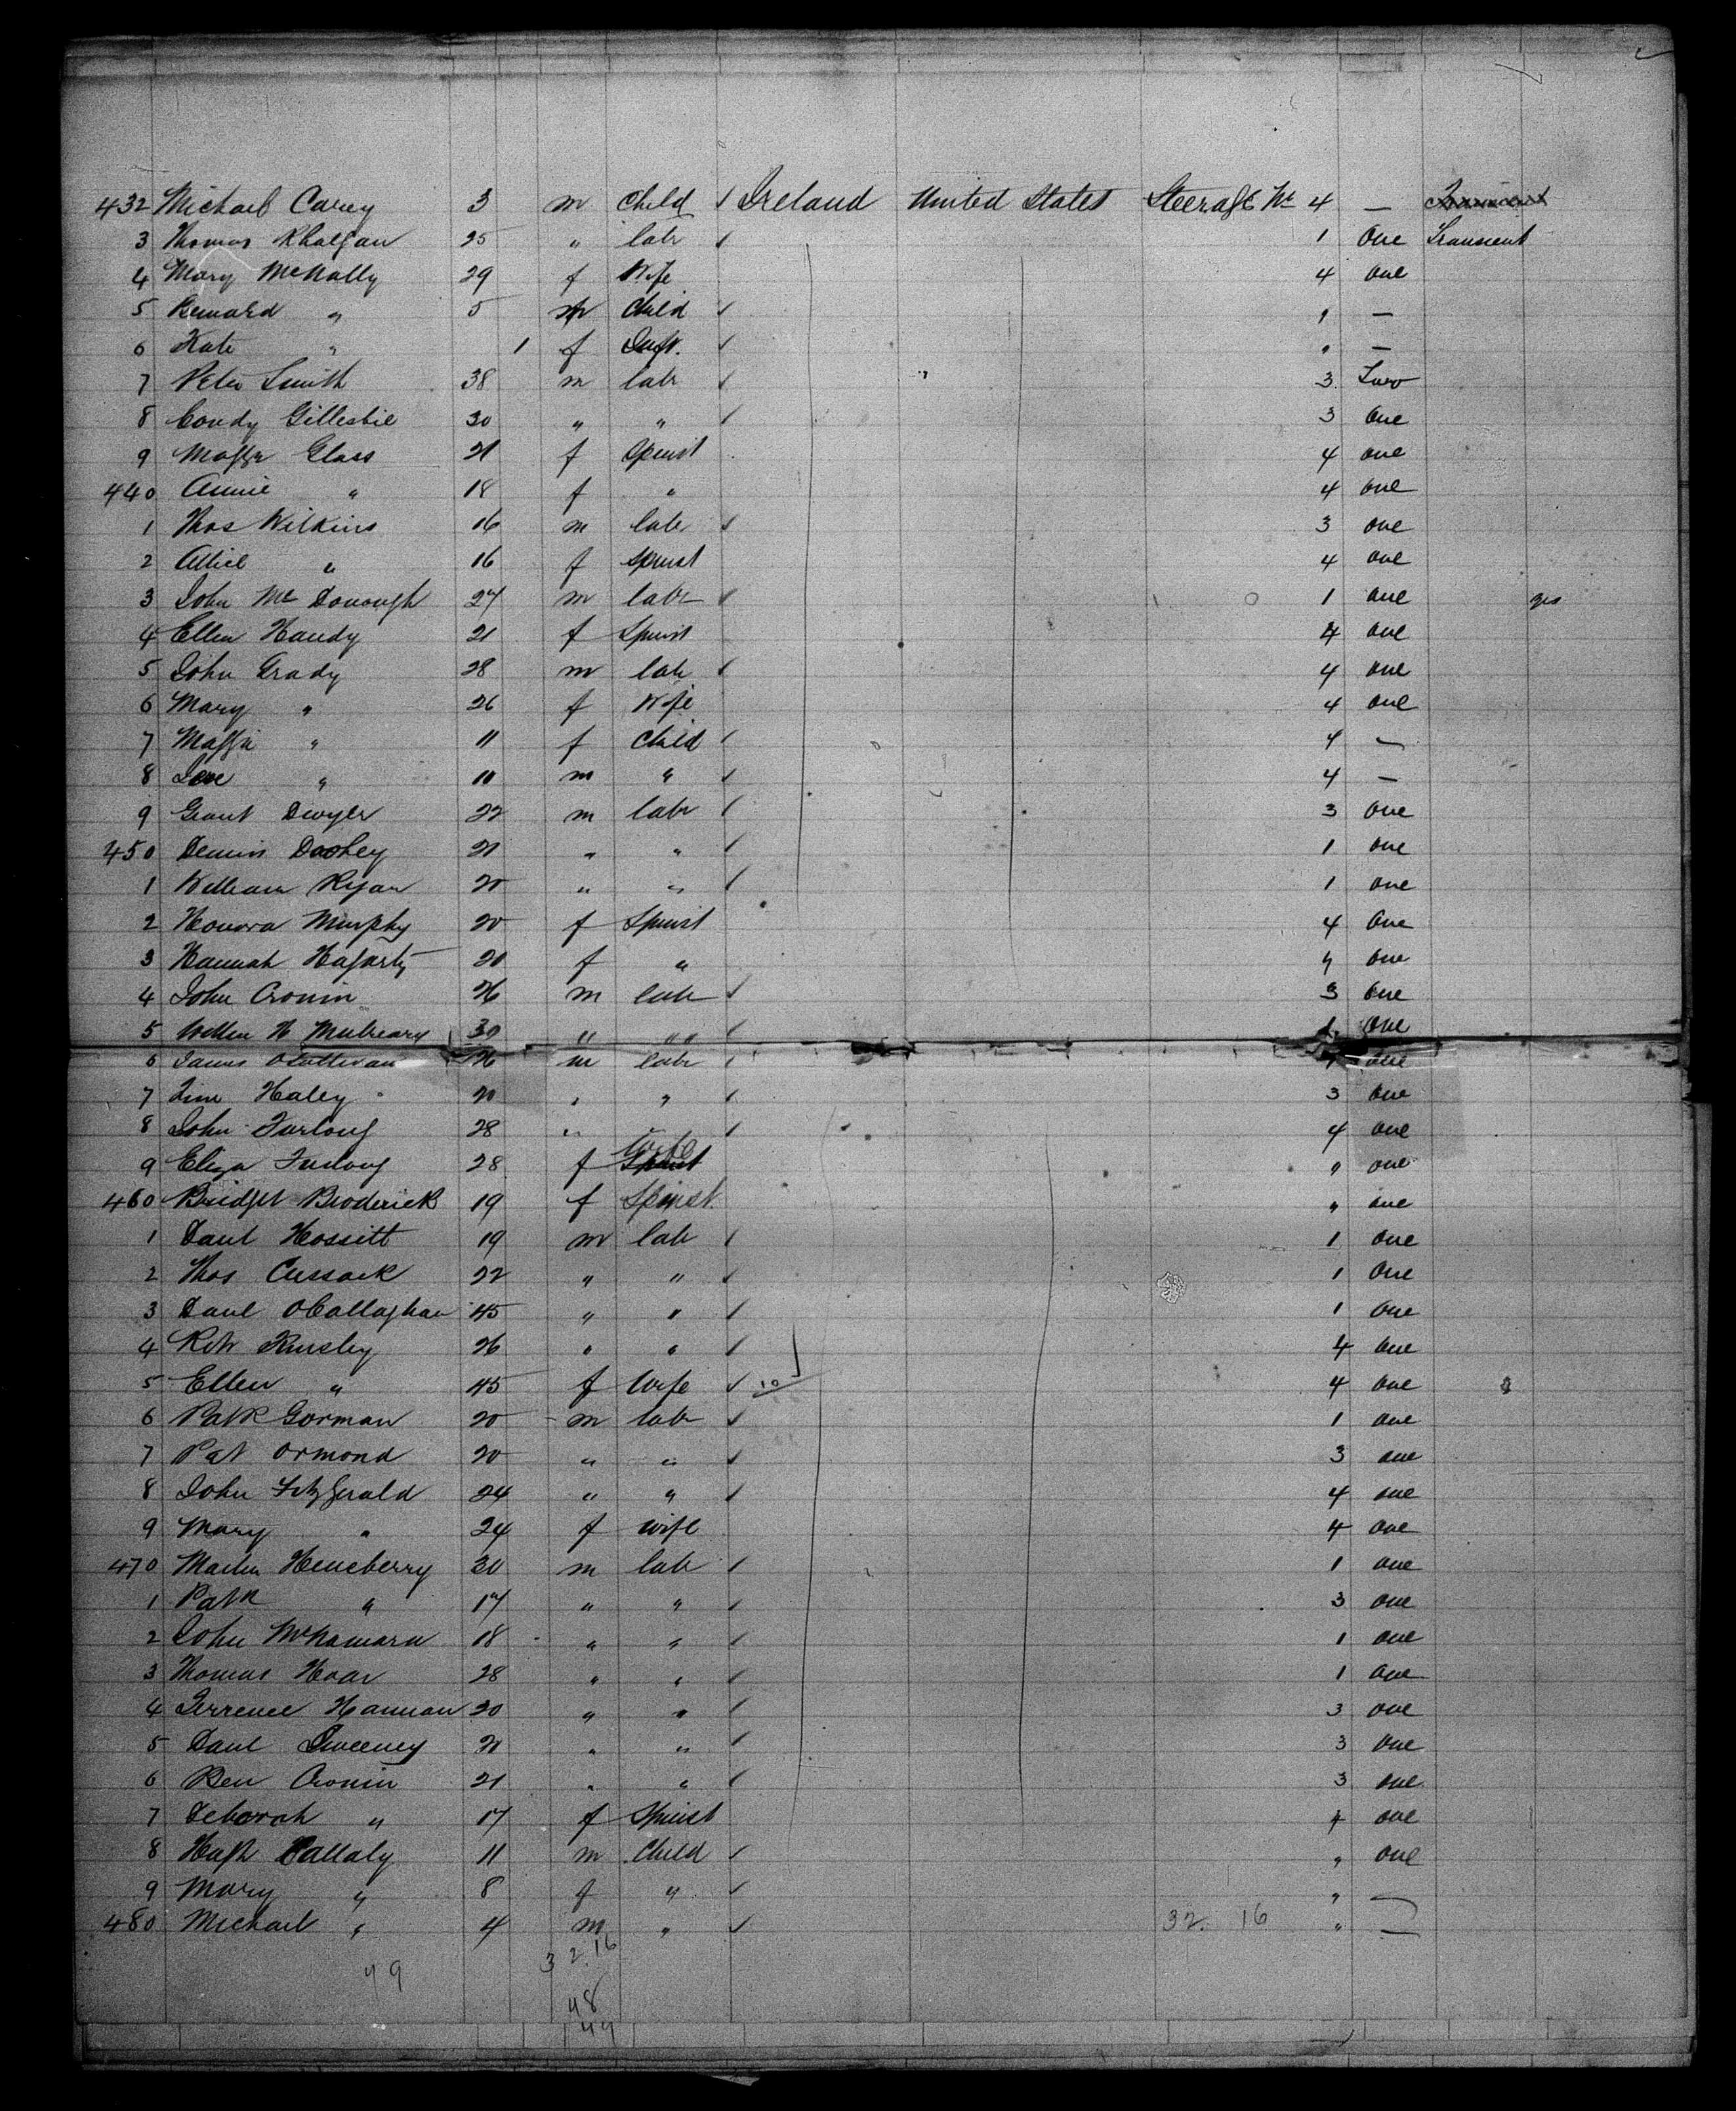 432 Michael Carey 3 m Child ✓ Ireland United States Steerage No 4 —
3 Thomas 25 " labr ✓ 1 One Transient
4 Mary McNally 29 f Wife 4 one
5 Bernard " 5 m Child ✓ " —
6 Kate " 1 f Inft. ✓ " —
7 Peter Smith 38 m labr ✓ " 3 Two
8 Condy Gillesbie 30 " " ✓ 3 One
9 Maggie Glass 21 f Spinst 4 one
440 Annie " 18 f " 4 one
1 Thos Wilkins 16 m labr ✓ 3 one
2 Allice " 16 f Spinst 4 one
3 John McDonough 27 m labr ✓ 1 one yes
4 Ellen Handy 21 f Spinst 4 one
5 John Grady 28 m labr ✓ 4 one
6 Mary " 26 f Wife 4 one
7 Maggie " 11 f Child ✓ 4 —
8 " 10 m " ✓ 4 —
9 Grant Dwyer 22 m labr ✓ 3 one
450 Dennis 21 " " ✓ 1 one
1 William Ryan 20 " " ✓ 1 one
2 Honora Murphy 20 f Spinst 4 One
3 Hannah Hagarty 20 f " 4 one
4 John Cronin 26 m labr ✓ 3 One
5 H 30 " " " ✓ 1 One
6 James OSullivan 26 m labr ✓ one
7 Tim Haley 20 " " ✓ 3 one
8 John Furlong 28 " ✓ 4 one
9 Eliza Furlong 28 f Wife " one
460 Bridget Broderick 19 f Spinst. " one
1 Danl Hossitt 19 m labr ✓ 1 one
2 Thos Cussack 22 " " ✓ 1 One
3 Danl OCallaghan 45 " " ✓ 1 One
4 Kinsley 26 " " ✓ 4 one
5 Ellen " 45 f Wife ✓ 10 4 one
6 Patk Gorman 20 m labr ✓ 1 one
7 Pat Ormond 20 " " ✓ 3 one
8 John Fitzgerald 24 " " ✓ 4 one
9 Mary " 24 f wife 4 one
470 Martin Heneberry 30 m labr ✓ 1 one
1 Patk " 17 " " ✓ 3 one
2 John McNamara 18 " " ✓ 1 one
3 Thomas Hoar 28 " " ✓ 1 One
4 Terrence Hannan 20 " " ✓ 3 one
5 Danl Sweeney 21 " " ✓ 3 one
6 Ben Cronin 21 " " ✓ 3 one
7 Deborah " 17 f Spinst 4 one
8 Hugh Callaly 11 m Child ✓ " one
9 Mary " 8 f " ✓ " —
480 Michael " 4 m " ✓ 32. 16 " —
32.16
49
48
49